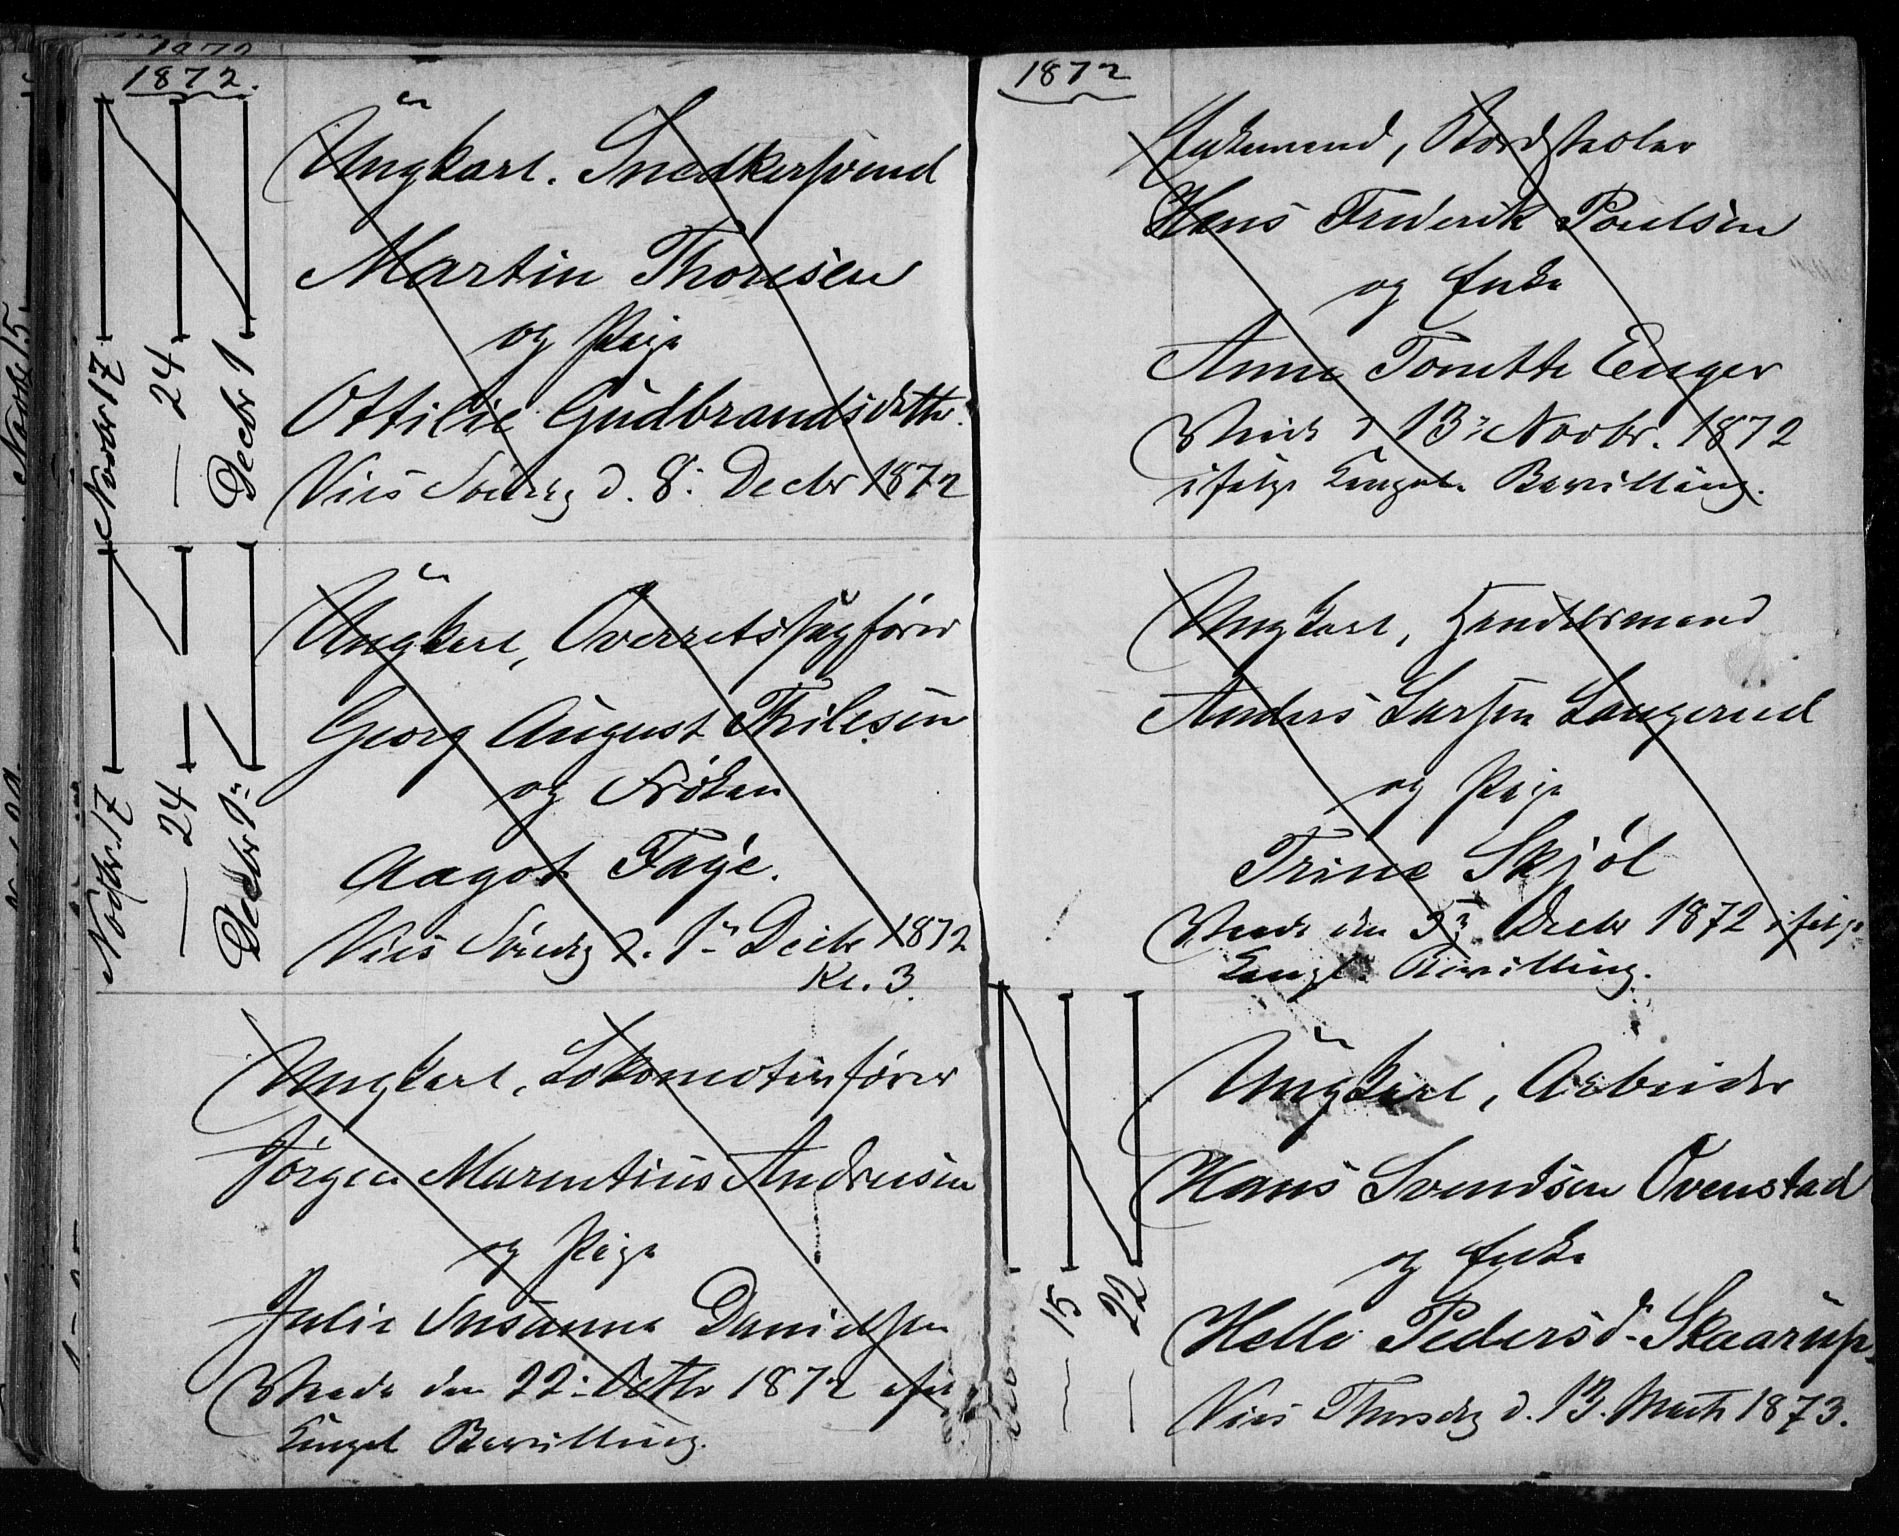 1872.
Novbr 17
— 24
Decbr 1
Ungkarl. Snedkersvend
Martin Thoresen
og Pige
Ottilie Gudbrandsdatter.
Vies Søndag d. 8: Decbr 1872
Novbr. 17
— 24
Decbr 1
Ungkarl, Overretssagfører
Georg August Thilesen
og Frøken
Aagot Faye.
Vies Søndag d. 1 Decbr 1872
Kl. 3.
Ungkarl, Lokomotivfører
Jørgen Marentius Andresen
og Pige
Julie Susanne Danielsen
den 22 Octbr 1872
Kongel Bevilling.
1872
Enkemand,
Hans Frederik Poulsen
og Enke
Anne Tonette Enger
d 13 Novbr. 1872
ifølge Kongel. Bevilling.
Ungkarl, Handelsmand
Anders Larsen Langerud
og Pige
Trine Skjøl
den 5 Decbr 1872 ifølge
Kongl. Bevilling.
— 15
— 22
Ungkarl, Arbeider
Hans Svendsen Ovenstad
og Enke
Helle Pedersd. Skaarup.
Vies Thorsdag d. 13. Marts 1873.